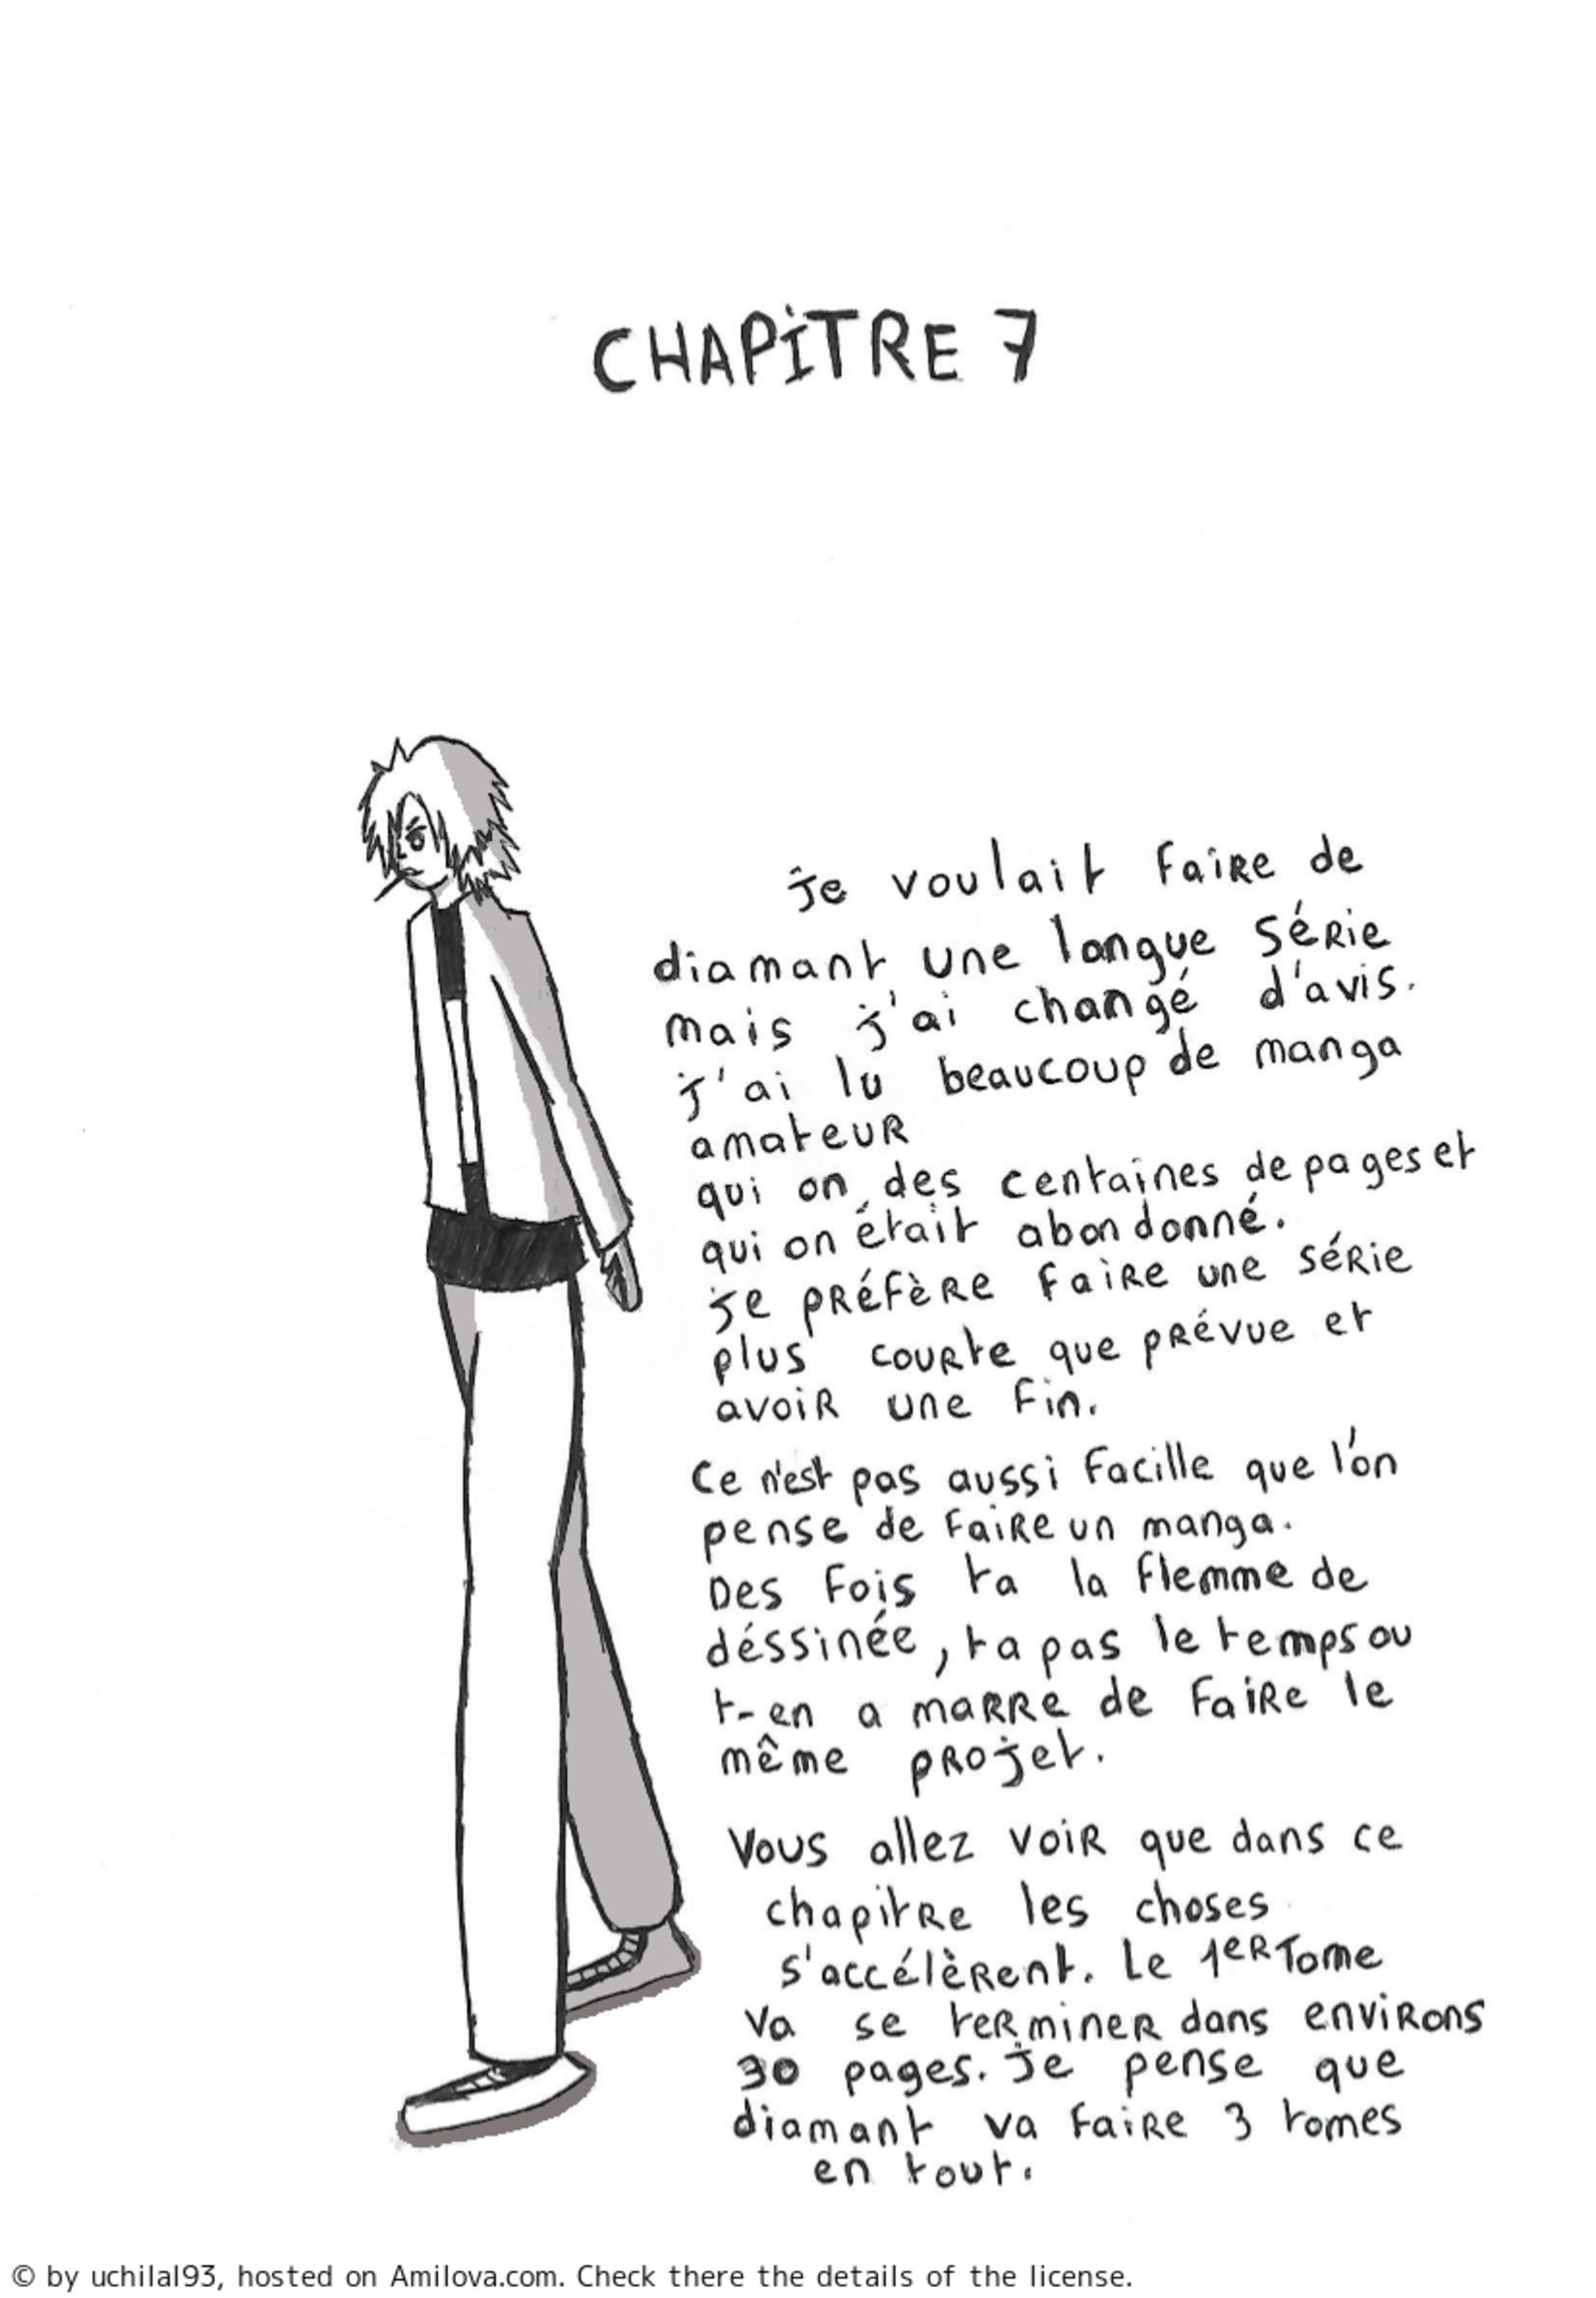 CHAPITRE 7
je voulait faire de
diamant une longue série
mais j'ai changé d'avis.
j'ai lu beaucoup de manga
amateur
qui on des centaines de pages et
qui on était abondonné.
je préfère faire une série
plus courte que prévue et
avoir une fin.
Ce n'est pas aussi facille que l'on
pense de faire un manga.
Des fois ta la flemme de
déssinée, ta pas le temps ou
t-en a marre de faire le
même projet.
Vous allez voir que dans ce
chapitre les choses
s'accélèrent. Le 1er Tome
va se terminer dans environs
30 pages. je pense que
diamant va faire 3 tomes
en tout.
© by uchilal93, hosted on Amilova.com. Check there the details of the license.